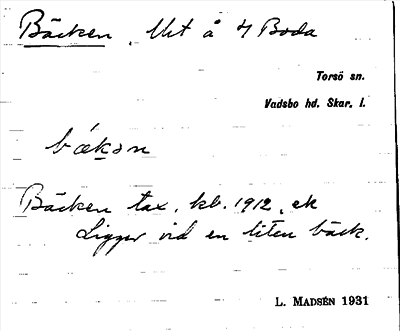 Bäcken, Utt å 4 Boda
Torsö sn.
Vadsbo hd. Skar. l.
bækən
Bäcken tax. kb. 1912, ek
Ligger vid en liten bäck.
L. MADSÉN 1931